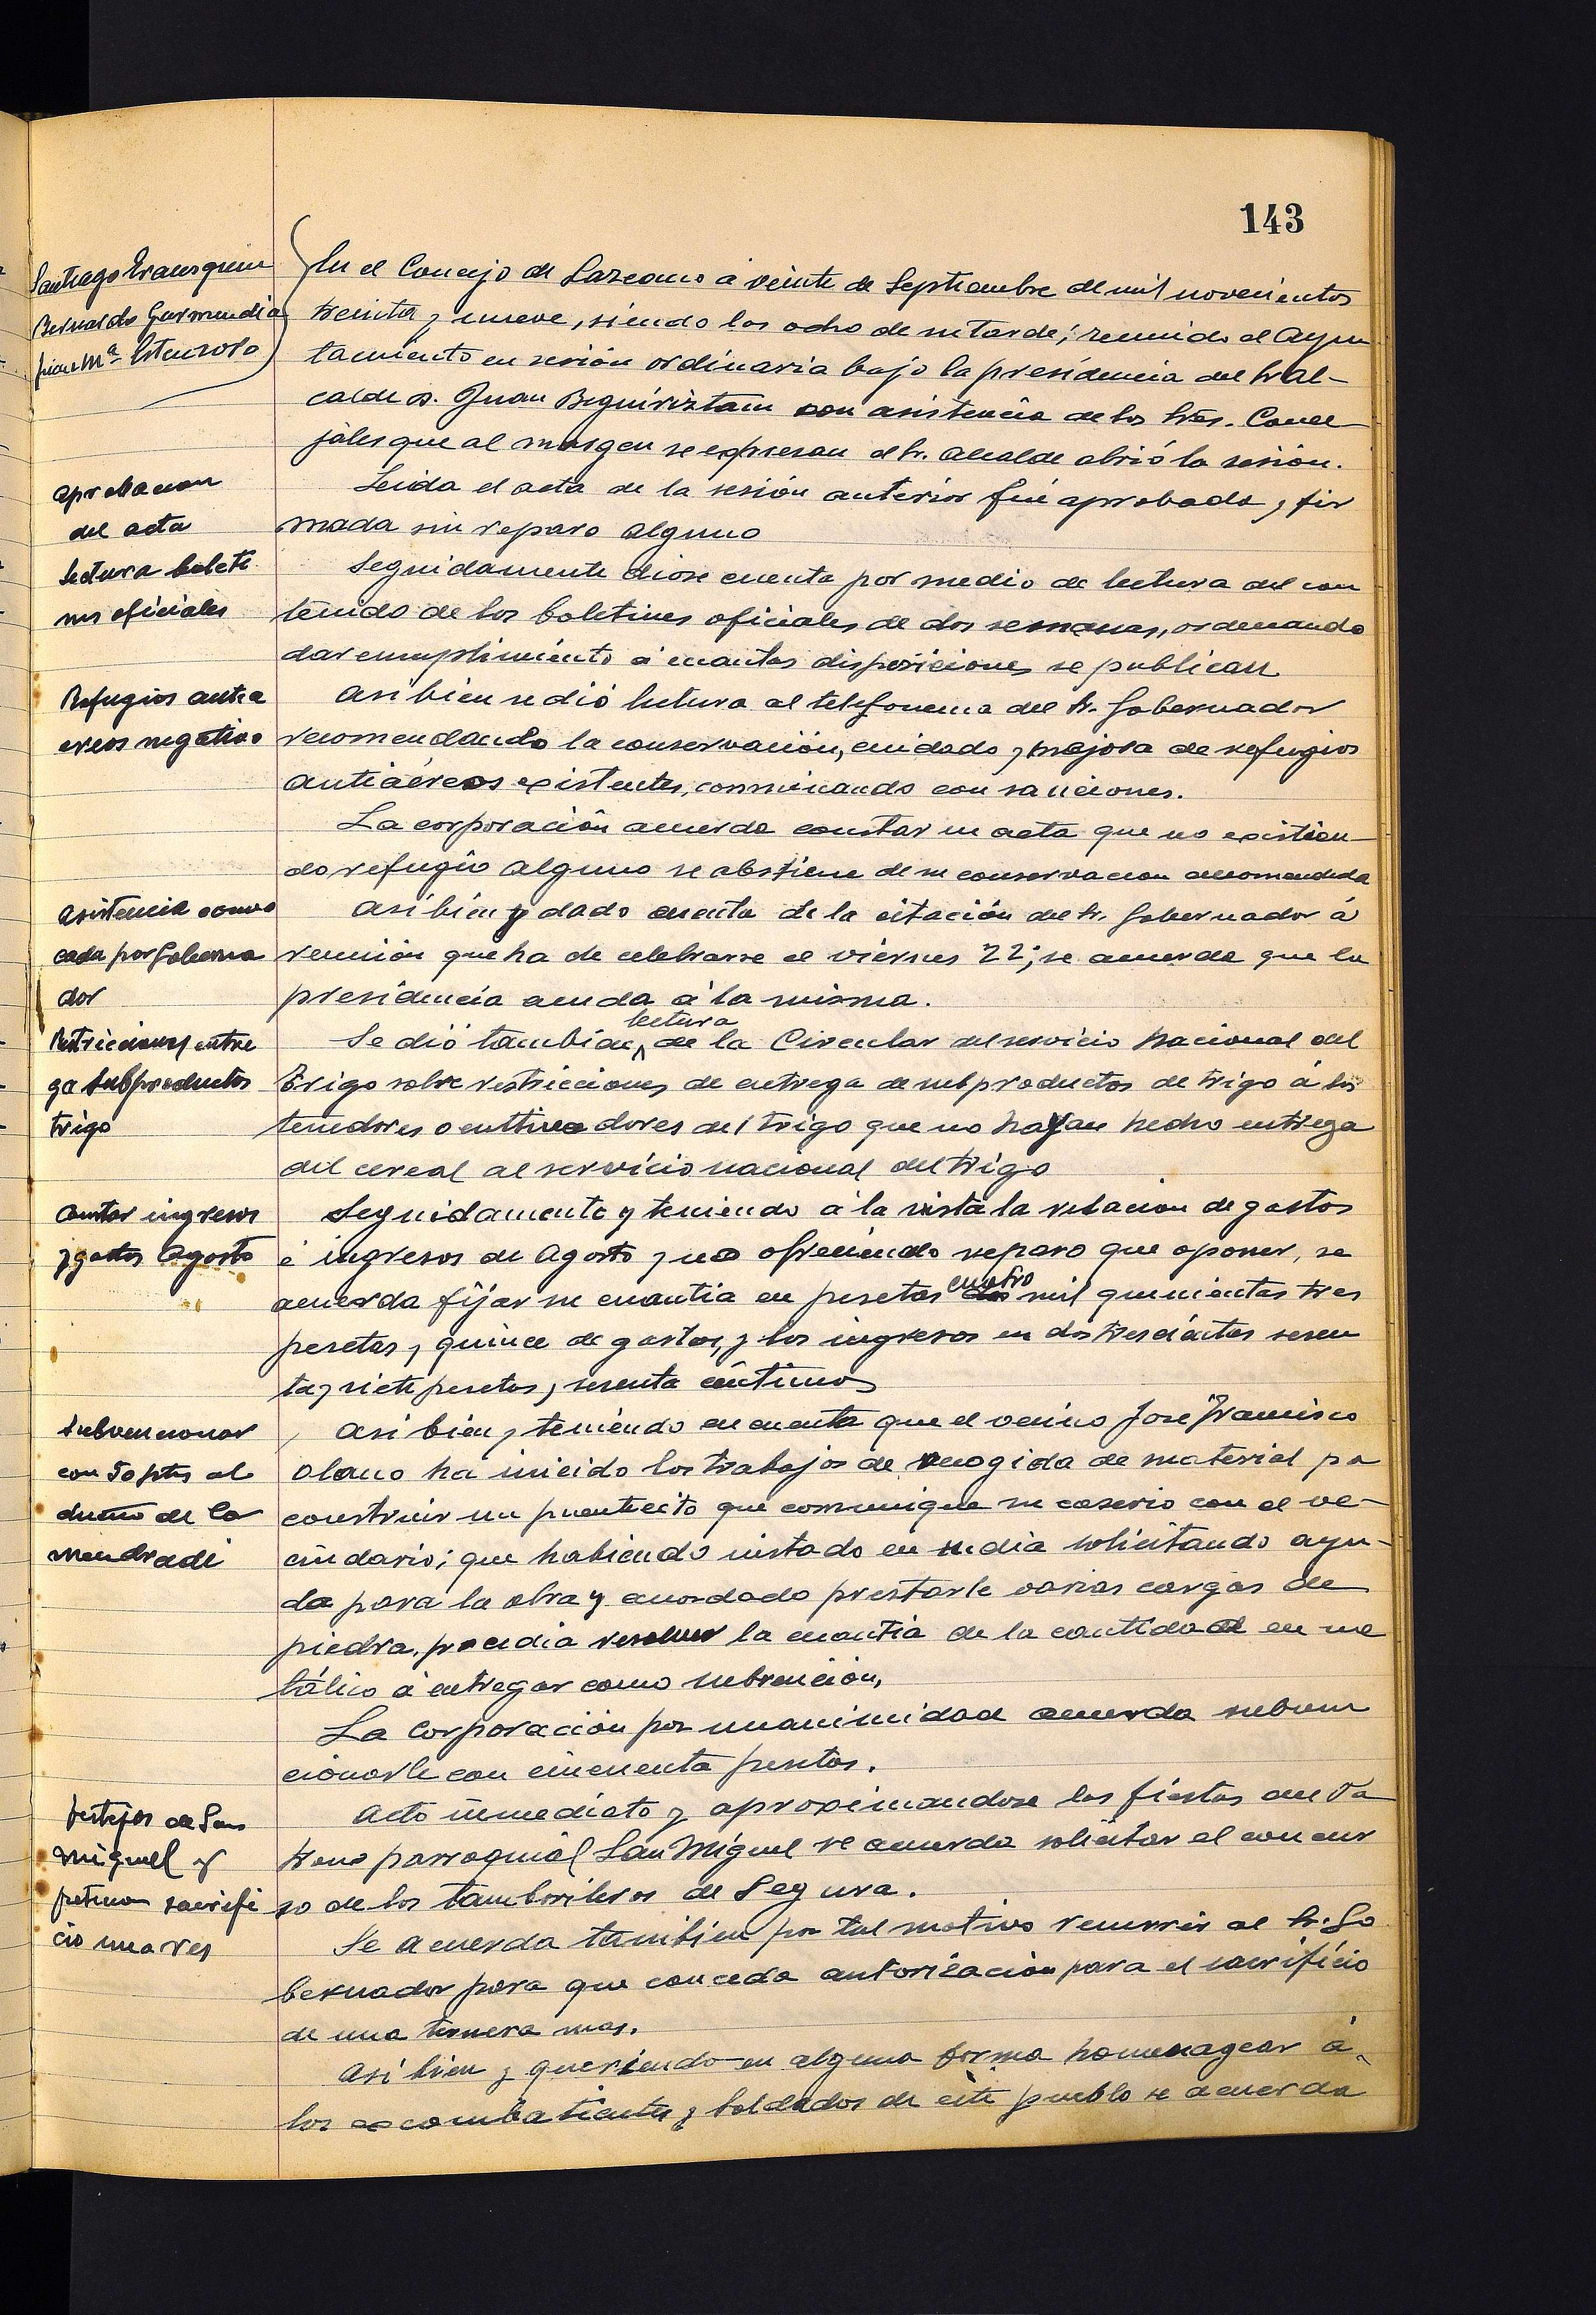 143
Santiago Irausquin
Bernardo Garmendia
José Mª
En el Concejo de Lazcano á veinte de Septiembre de mil novecientos
treinta y nueve, siendo las ocho de su tarde; reunido el Ayun
tamiento en sesión ordinaria bajo la presidencia del Sr Al-
calde D. Juan Beguiriztain con asistencia de los Sres. Conce
jales que al margen se expresan el Sr. Alcalde abrió la sesión.
aprobacion
del acta
Leida el acta de la sesión anterior fué aprobada y fir
mada sin reparo alguno
Lectura boleti
nes oficiales
Seguidamente diose cuenta por medio de lectura del con
tenido de los boletines oficiales de dos semanas, ordenando
dar cumplimiento á cuantas disposiciones se publican
Refugios antia
ereos negativo
Asi bien se dió lectura al telefonema del Sr. Gobernador
recomendando la conservación, cuidado y mejora de refugios
antiaéreos existentes, conminando con sanciones.
La corporación acuerda constar en acta que no existien-
do refugio alguno se abstiene de su conservacion recomendada
Asistencia convo
cada por Goberna
dor
Asi bien y dado cuenta de la citación del Sr. Gobernador á
reunión que ha de celebrarse el viernes 22; se acuerda que la
presidencia acuda á la misma.
Restricciones entre
ga subproductos
trigo
Se dió también lectura de la Circular del servicio Nacional del
trigo sobre restricciones de entrega de subproductos de trigo á los
tenedores o cultivadores del trigo que no hayan hecho entrega
del cereal al servicio nacional del trigo
Constar ingresos
y gastos Agosto
Seguidamente y teniendo á la vista la relacion de gastos
é ingresos de Agosto y no ofreciendo reparo que oponer, se
acuerda fijar su cuantia en pesetas cuatro mil quinientas tres
pesetas y quince de gastos, y los ingresos en dos trescientas sesen
ta y siete pesetas y sesenta céntimos
Subvencionar
con 50 ptas al
dueño de la
Mendradi
Asi bien y teniendo en cuenta que el vecino José Francisco
Olano ha inicido los trabajos de recogida de material pa
construir un puentecito que comunique su caserio con el ve-
cindario; que habiendo instado en su dia solicitando ayu-
da para la obra y acordado prestarle varias cargas de
piedra, procedia resolver la cuantia de la cantidad en me
tálico á entregar como subvención,
La Corporación por unanimidad acuerda subven
cionarle con cincuenta pesetas.
festejos de San
Miguel y
peticion sacrifi
cio una res
Acto inmediato y aproximandose las fiestas del Pa
trono parroquial San Miguel se acuerda solicitar el concur
so de los tamborileros de Segura.
Se acuerda tambien por tal motivo recurrir al Sr. Go
bernador para que conceda autorizacion para el sacrificio
de una ternera mas.
Asi bien y queriendo en alguna forma homenagear á
los excombatientes y soldados de este pueblo se acuerda